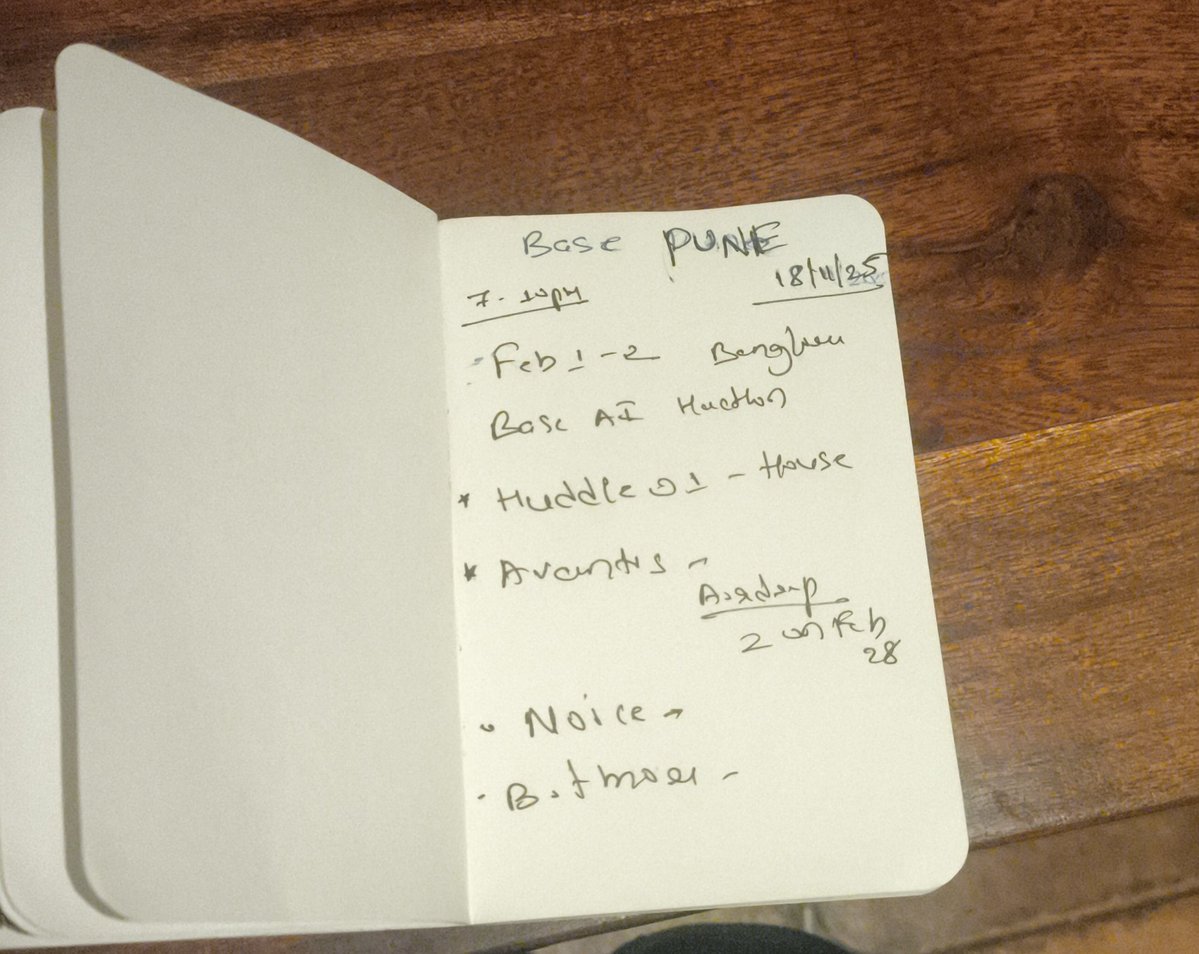 Base PUNE
18/11/25
7-10pm
Feb 1-2
Base AI
* Huddle 01 - House
* Avantis -
2 on Feb
28
• Noice →